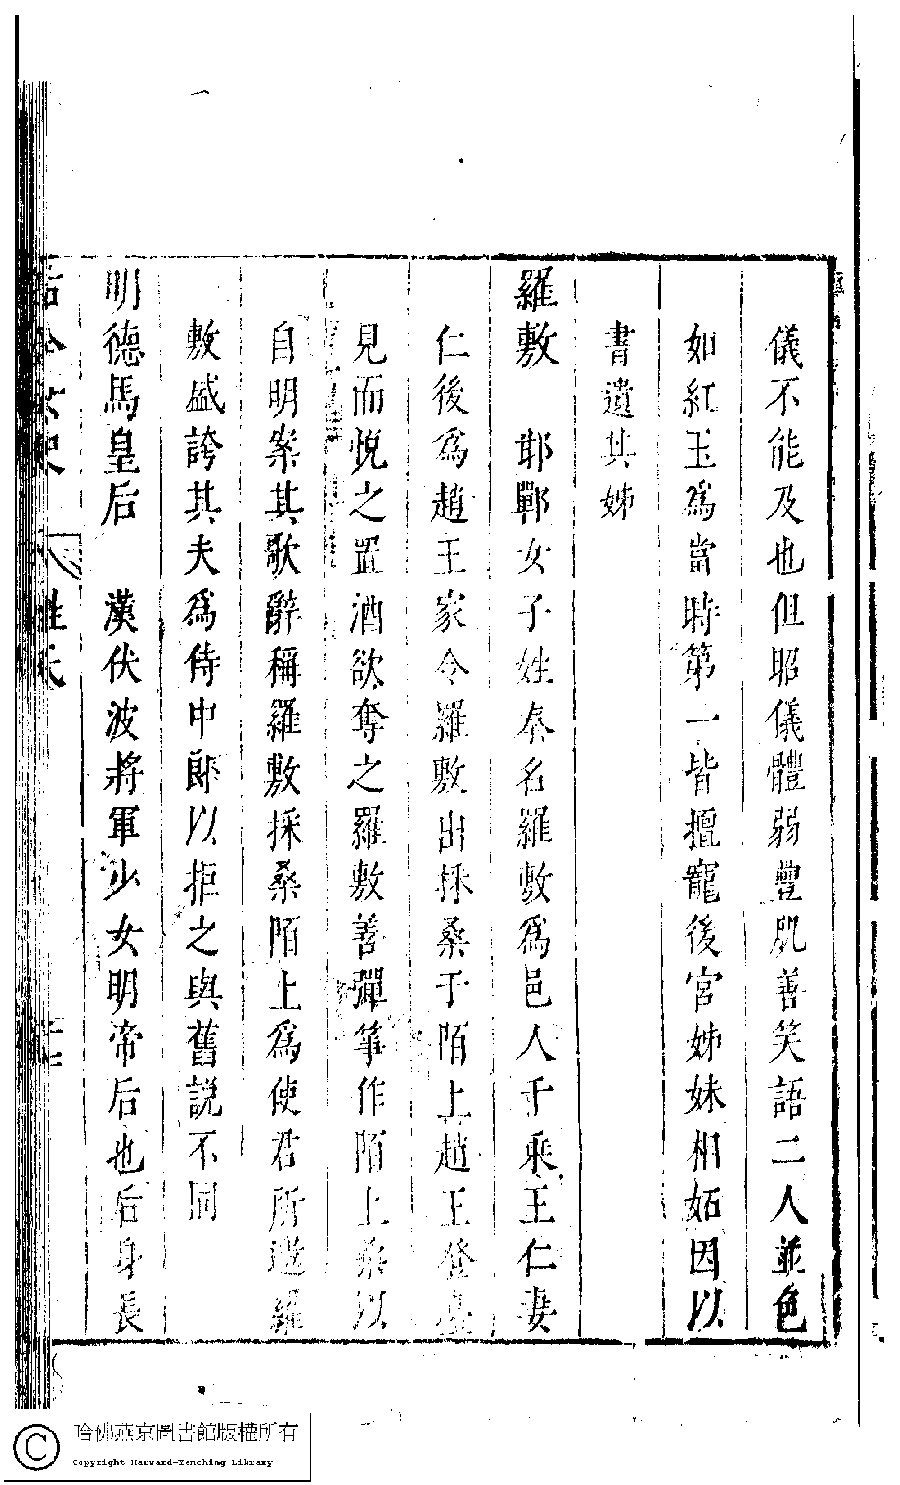 儀不能及也但昭儀體弱豐肌善笑語二人並色
如紅玉為當時第一皆擅寵後宮姊妹相妬因以
書遺其姊
羅敷　邯鄲女子姓秦名羅敷為邑人千乘王仁妻
仁後為趙王家令羅敷出採桑于陌上趙王登臺
見而悅之置酒欲奪之羅敷善彈箏作陌上桑以
自明案其歌辭稱羅敷採桑陌上為使君所邀羅
敷盛誇其夫為侍中郎以拒之與舊說不同
明德馬皇后　漢伏波將軍少女明帝后也后身長
古今女史 姓氏
哈佛燕京圖書館版權所有
Copyright Harvard-Yenching Library